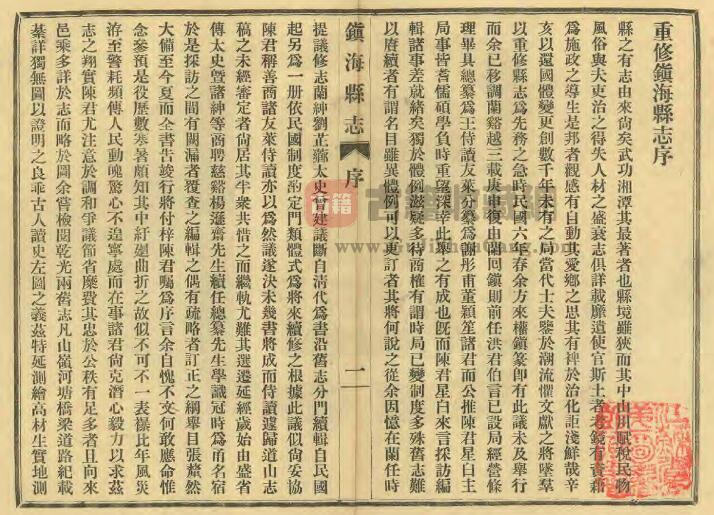 重修鎮海縣志序
縣之有志由來尙矣武功湘潭其最著者也縣境雖狹而其中山川賦稅民物
風俗與夫吏治之得失人材之盛衰志俱詳載靡遺使官斯土者有鏡有資藉
爲施政之導生是邦者觀感有自動其愛鄉之思其有裨於治化詎淺鮮哉辛
亥以還國體變更創數千年未有之局當代士夫鑒於潮流懼文獻之將墜羣
以重修縣志爲先務之急時民國六年春余方來權鎮篆卽有此議未及舉行
而余已移調蘭谿越三載庚申復由蘭回鎮則前任洪君伯言已設局經營條
理畢具總纂爲王侍讀友萊分纂爲謝彤甫董穎笙諸君而公推陳君星白主
局事皆耆儒碩學負時重望深幸此舉之有成也旣而陳君星白來言採訪編
輯諸事差就緒矣獨於體例滋疑多待商榷有謂時局已變制度多殊舊志難
以賡續者有謂名目雖異體例可以更訂者其將何說之從余因憶在蘭任時
鎮海縣志
序
一
提議修志蘭紳劉芷薌太史曾建議斷自清代爲書沿舊志分門續輯自民國
起另爲一册依民國制度酌定門類體式爲將來續修之根據此議似尙妥協
陳君稱善商諸友萊侍讀亦以爲然議遂決未幾書將成而侍讀遽歸道山志
稿之未經審定者尙居其半衆共惜之而繼軌尤難其選遷延經歲始由盛省
傳太史曁諸紳等商聘慈谿楊遜齋先生續任總纂先生學識冠時爲甬名宿
於是採訪之間有闕漏者覆查之編輯之偶有疏略者訂正之綱舉目張釐然
大備至今夏而全書告竣行將付梓陳君囑爲序言余自愧不文何敢應命惟
念參預是役歷數寒暑頗知其中紆𢌞曲折之故似不可不一表襮比年風災
洊至警耗頻傳人民動魄驚心不遑寧處而在事諸君尙克潛心毅力以求茲
志之翔實陳君尤注意於調和爭議節省糜費其忠於公秩有足多者且向來
邑乘多詳於志而略於圖余嘗檢閱乾光兩舊志凡山嶺河塘橋梁道路紀載
綦詳獨無圖以證明之良乖古人讀史左圖之義茲特延測繪高材生實地測
古籍
www.gujishuku.com